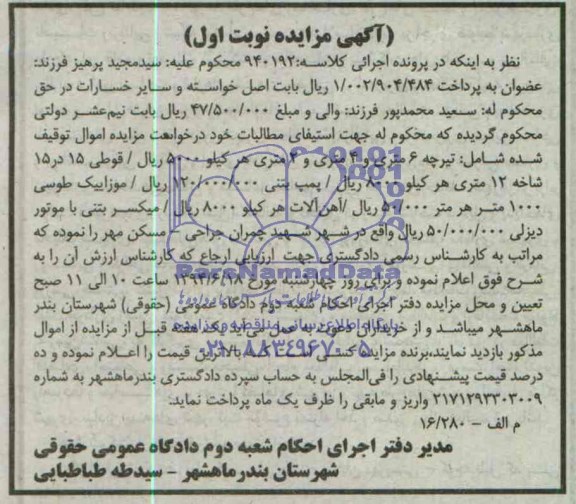 (آگهی مزایده نوبت اول)
نظر به اینکه در پرونده اجرائی کلاسه:۹۴۰۱۹۲ محکوم علیه: سیدمجید پرهیز فرزند:
عضوان به پرداخت ۱/۰۰۲/۹۰۴/۴۸۴ ریال بابت اصل خواسته و سایر خسارات در حق
محکوم له: سعید محمدپور فرزند: والی و مبلغ ۴۷/۵۰۰/۰۰۰ ریال بابت نیم‌عشر دولتی
محکوم گردیده که محکوم له جهت استیفای مطالبات خود درخواست مزایده اموال توقیف
شده شامل: تیرچه ۶ متری و ۴ متری و ۳ متری هر کیلو ۵۰۰۰ ریال / قوطی ۱۵ در۱۵
شاخه ۱۲ متری هر کیلو ریال / پمپ بتنی ۱۲۰/۰۰۰/۰۰۰ ریال / موزاییک طوسی
۱۰۰۰ متر هر متر ۵۰/۰۰۰ ریال /آهن‌آلات هر کیلو ۸۰۰۰ ریال / میکسر بتنی با موتور
دیزلی ۵۰/۰۰۰/۰۰۰ ریال واقع در شهر شهید چمران جراحی – مسکن مهر را نموده که
مراتب به کارشناس رسمی دادگستری جهت ارزیابی ارجاع که کارشناس ارزش آن را به
شرح فوق اعلام نموده و برای روز چهارشنبه مورخ ۱۳۹۴/۶/۱۸ ساعت ۱۰ الی ۱۱ صبح
تعیین و محل مزایده دفتر اجرای احکام شعبه دوم دادگاه عمومی (حقوقی) شهرستان بندر
ماهشهر میباشد و از خریداران دعوت به عمل می‌آید یک هفته قبل از مزایده از اموال
مذکور بازدید نمایند،برنده مزایده کسی است که بالاترین قیمت را اعلام نموده و ده
درصد قیمت پیشنهادی را فی‌المجلس به حساب سپرده دادگستری بندرماهشهر به شماره
۲۱۷۱۲۹۳۳۰۳۰۰۹ واریز و مابقی را ظرف یک ماه پرداخت نماید:
م الف – ۱۶/۲۸۰
مدیر دفتر اجرای احکام شعبه دوم دادگاه عمومی حقوقی
شهرستان بندرماهشهر – سیدطه طباطبایی
ParsNamadData
پایگاه اطلاع رسانی مناقصه و مزایده
۰۲۱-۸۸۳۴۹۶۷۰-۵